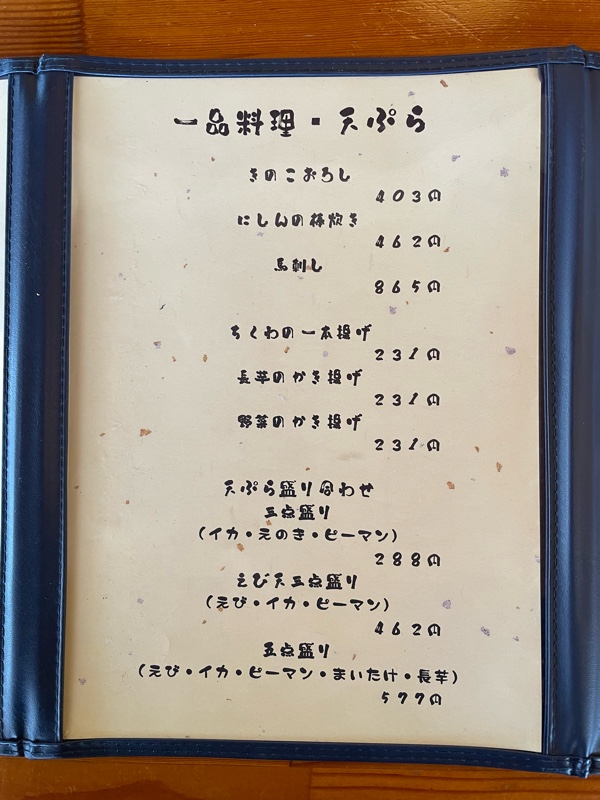 一品料理・天ぷら
きのこおろし
403円
にしんの棒炊き
462円
馬刺し
865円
ちくわの一本揚げ
231円
長芋のかき揚げ
231円
野菜のかき揚げ
231円
天ぷら盛り合わせ
三点盛り
(イカ・えのき・ピーマン)
288円
えび天三点盛り
(えび・イカ・ピーマン)
462円
五点盛り
(えび・イカ・ピーマン・まいたけ・長芋)
577円